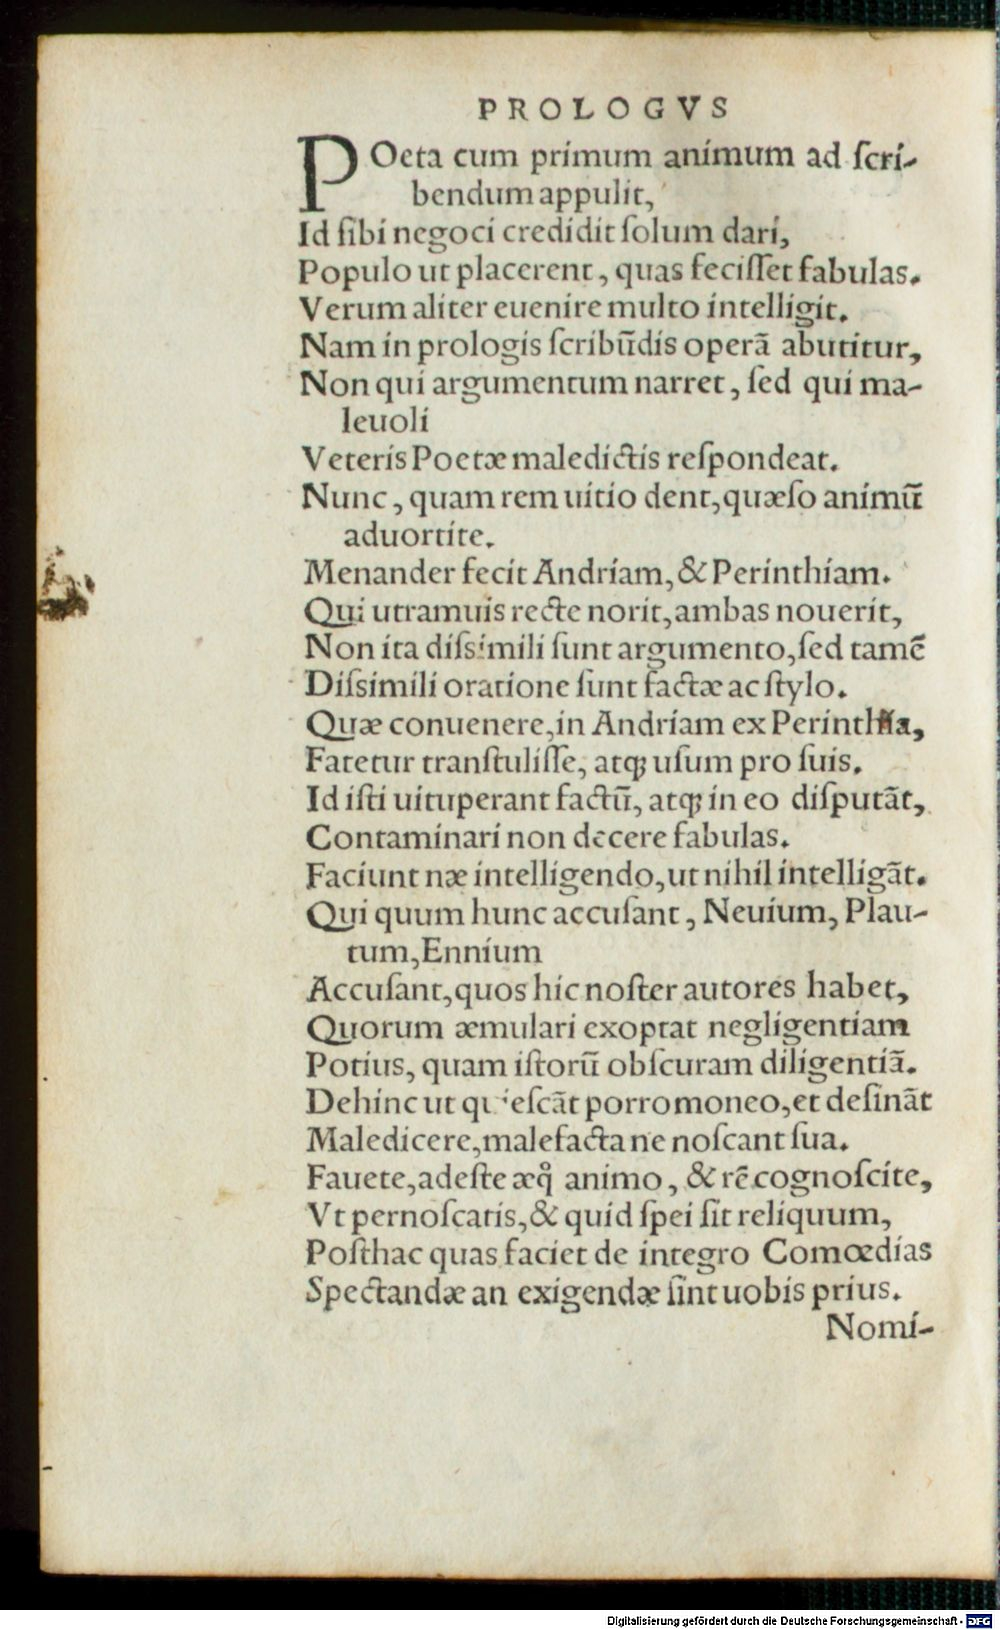 PROLOGVS
POeta cum primum animum ad ſcri-
bendum appulit,
Id ſibi negoci credidit ſolum dari,
Populo ut placerent, quas feciſſet fabulas.
Verum aliter euenire multo intelligit.
Nam in prologis ſcribũdis operã abutitur,
Non qui argumentum narret, ſed qui ma-
leuoli
Veteris Poetæ maledictis reſpondeat.
Nunc, quam rem uitio dent, quæſo animũ
aduortite.
Menander fecit Andriam, & Perinthiam.
Qui utramuis recte norit, ambas nouerit,
Non ita diſsimili ſunt argumento, ſed tamẽ
Diſsimili oratione ſunt factæ ac ſtylo.
Quæ conuenere, in Andriam ex Perinthia,
Fatetur tranſtuliſſe, atqꝫ uſum pro ſuis.
Id iſti uituperant factũ, atqꝫ in eo diſputãt,
Contaminari non decere fabulas.
Faciunt næ intelligendo, ut nihil intelligãt.
Qui quum hunc accuſant, Neuium, Plau-
tum, Ennium
Accuſant, quos hic noſter autores habet,
Quorum æmulari exoptat negligentiam
Potius, quam iſtorũ obſcuram diligentiã.
Dehinc ut quieſcãt porro moneo, et deſinãt
Maledicere, malefacta ne noſcant ſua.
Fauete, adeſte æqͦ animo, & rẽ cognoſcite,
Vt pernoſcatis, & quid ſpei ſit reliquum,
Poſthac quas faciet de integro Comœdias
Spectandæ an exigendæ ſint uobis prius.
Nomi-
Digitalisierung gefördert durch die Deutsche Forschungsgemeinschaft - DFG